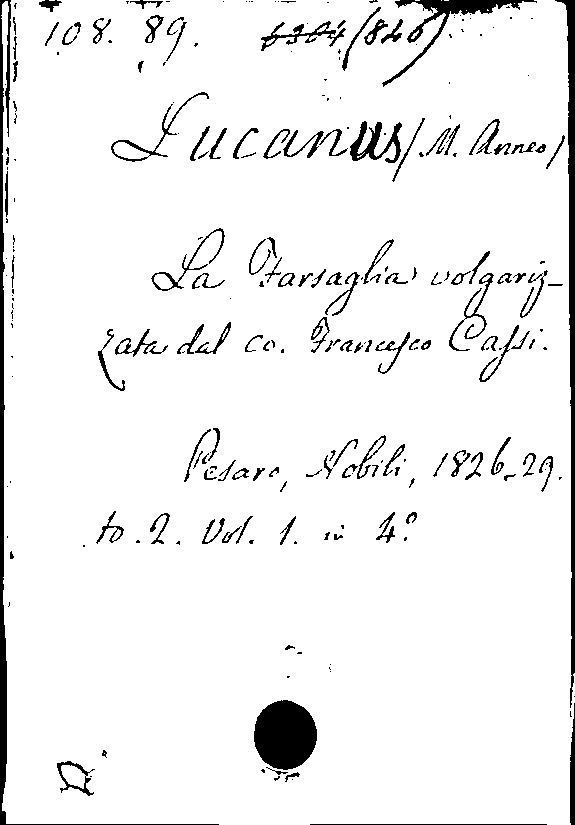 108. 89. 6304 (846)
Lucanus (M. Anneo)
La Farsaglia volgariz-
zata dal co. Francesco Cassi.
Pesaro, Nobili, 1826-29.
to. 2. Vol. 1. in 4.º